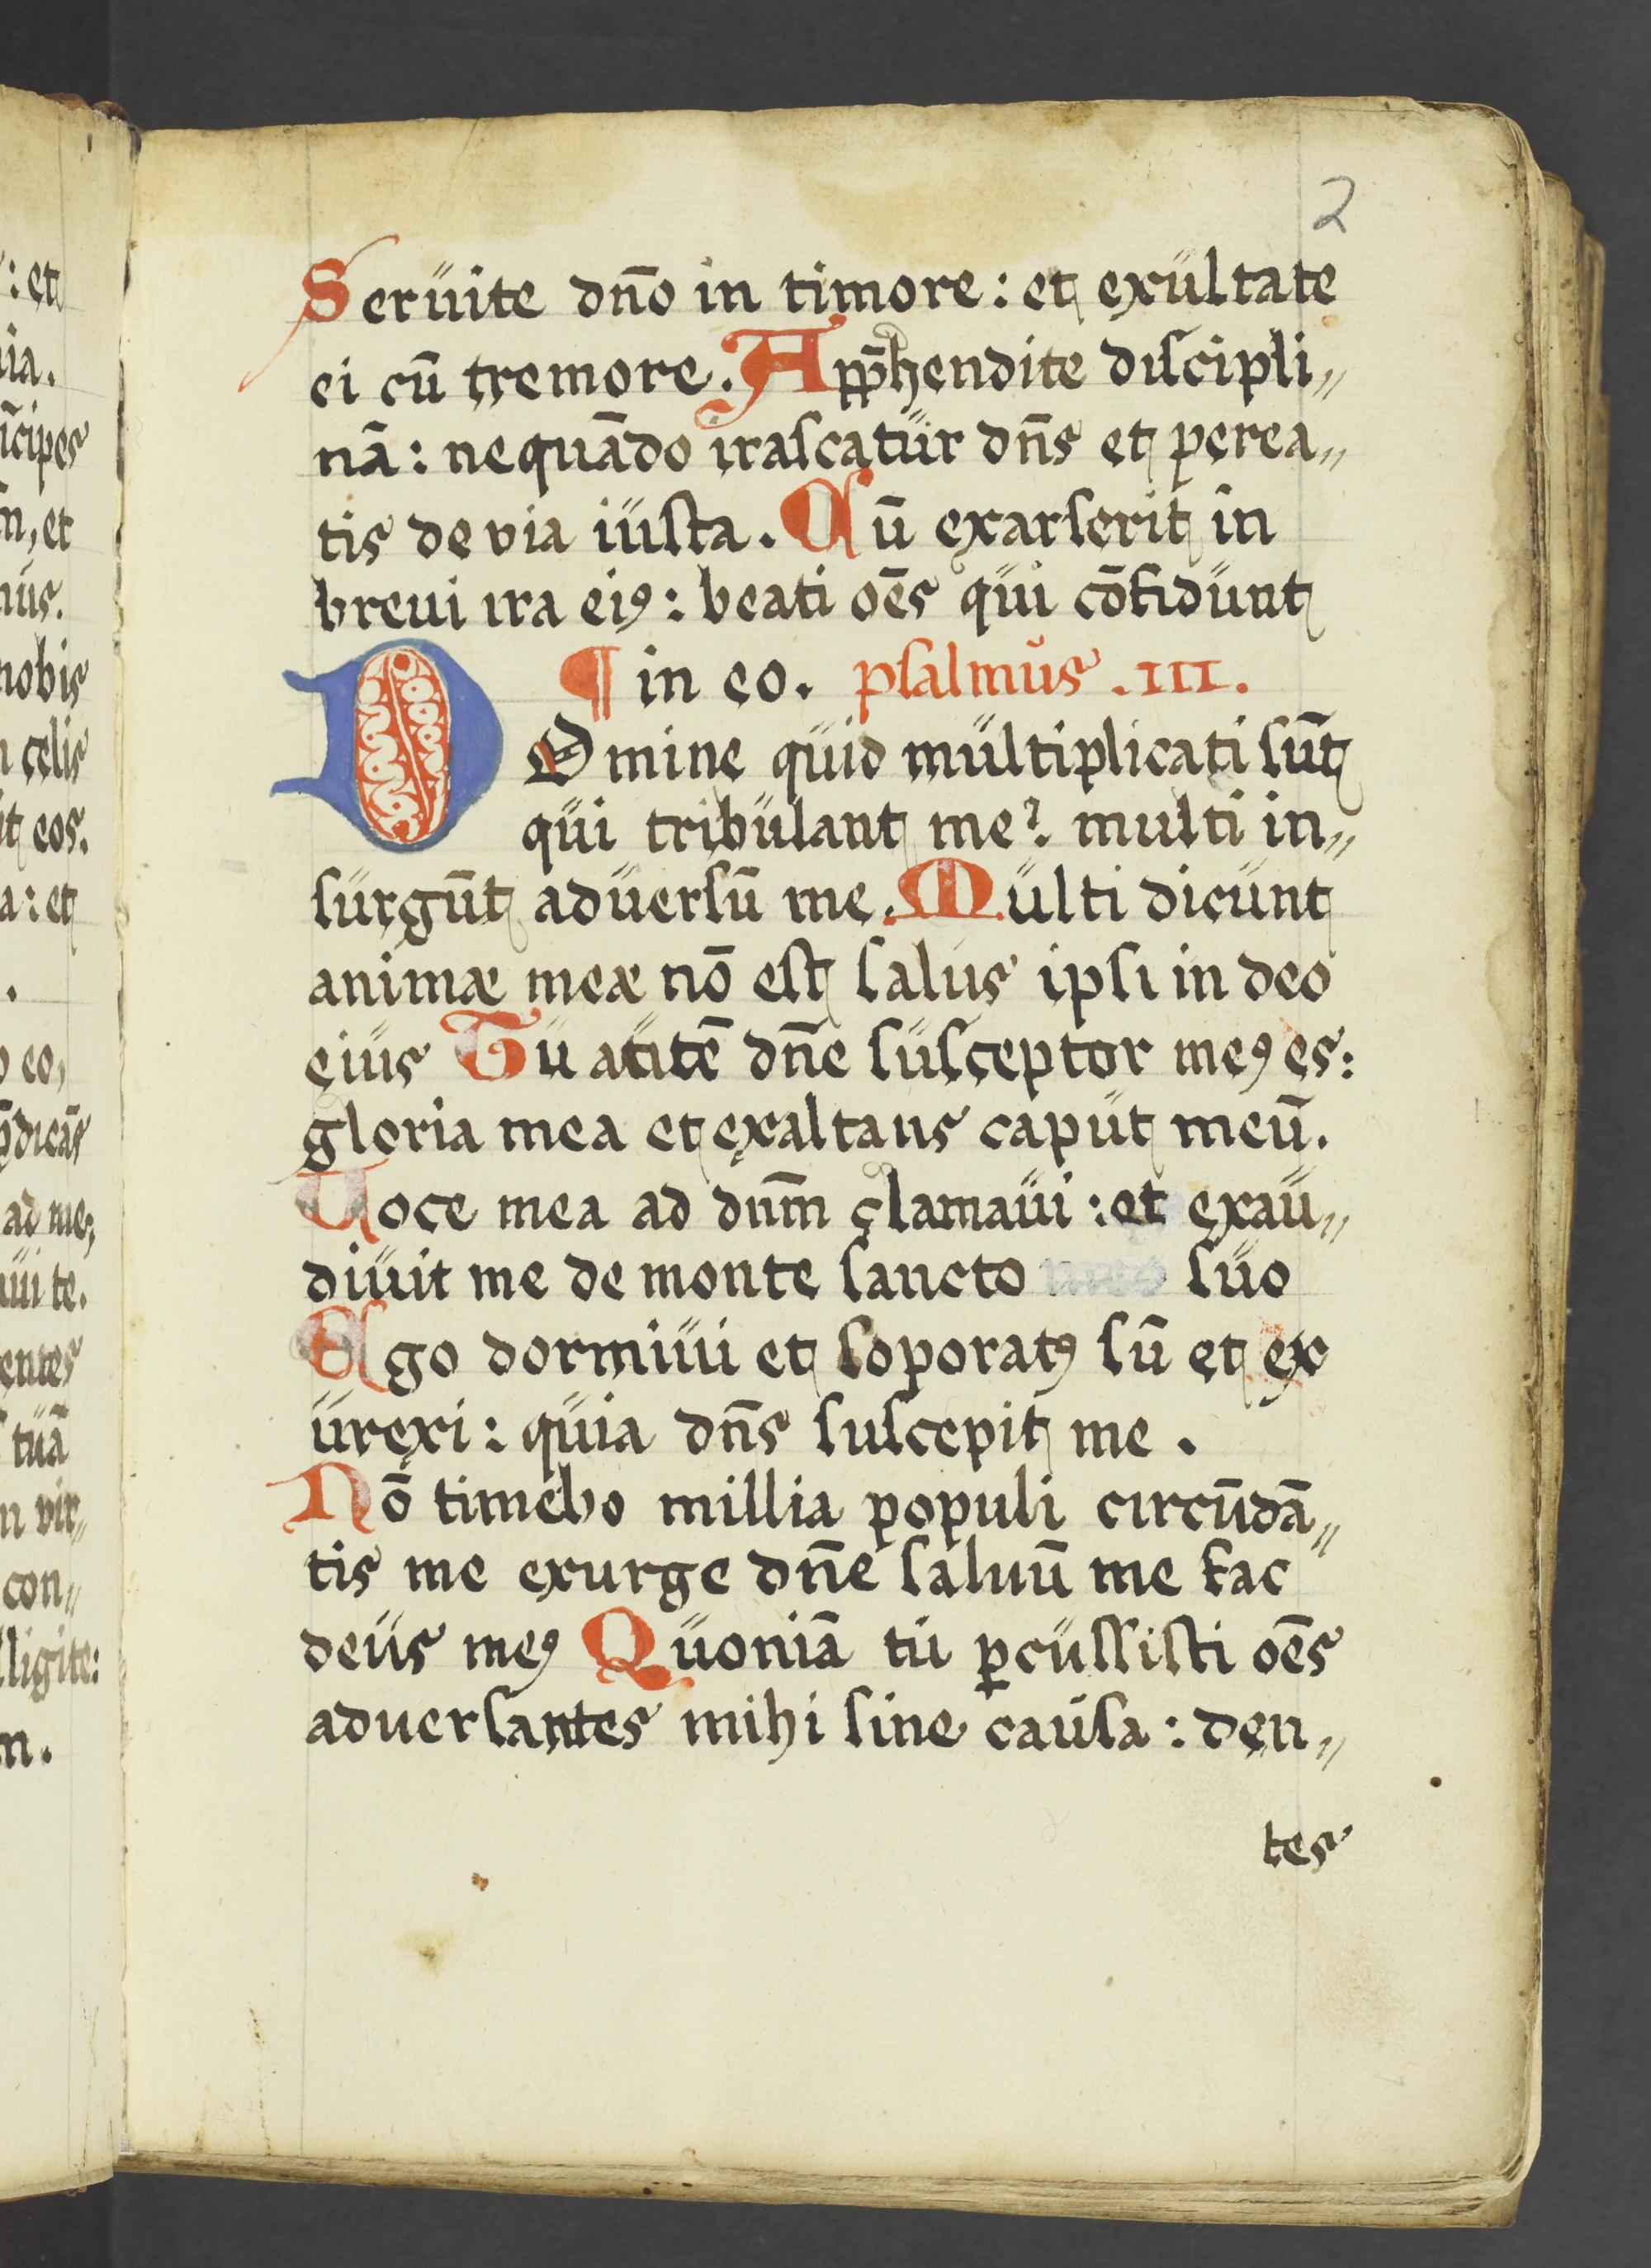 2
Seruite dn̄o in timore: et exultate
ei cū tremore. App̄hendite discipli„
nā: nequādo irascatur dn̄s et perea„
tis de via iusta. Cū exarserit in
breui ira eiꝰ: beati oēs qui cōfidunt
¶ in eo. psalmus .III.
DOmine quid multiplicati sūt
qui tribulant me? multi in„
surgūt aduersū me. Multi dicunt
animæ meæ nō est salus ipsi in deo
eius Tu autē dn̄e susceptor meꝰ es:
gloria mea et exaltans caput meū.
Uoce mea ad dnm̄ clamaui: et exau„
diuit me de monte sancto suo
Ego dormiui et soporatꝰ sū et ex
urexi: quia dn̄s suscepit me.
Nō timebo millia populi circūdā„
tis me exurge dn̄e saluū me fac
deus meꝰ Quoniā tu ꝑcussisti oēs
aduersantes mihi sine causa: den„
tes
: et
ia.
īcipes
n, et
nus.
nobis
n celis
it eos.
a: et
.
o eo,
p̄dicās
ad me;
ui te.
entes
tuā
n vir„
con„
ligite:
m.